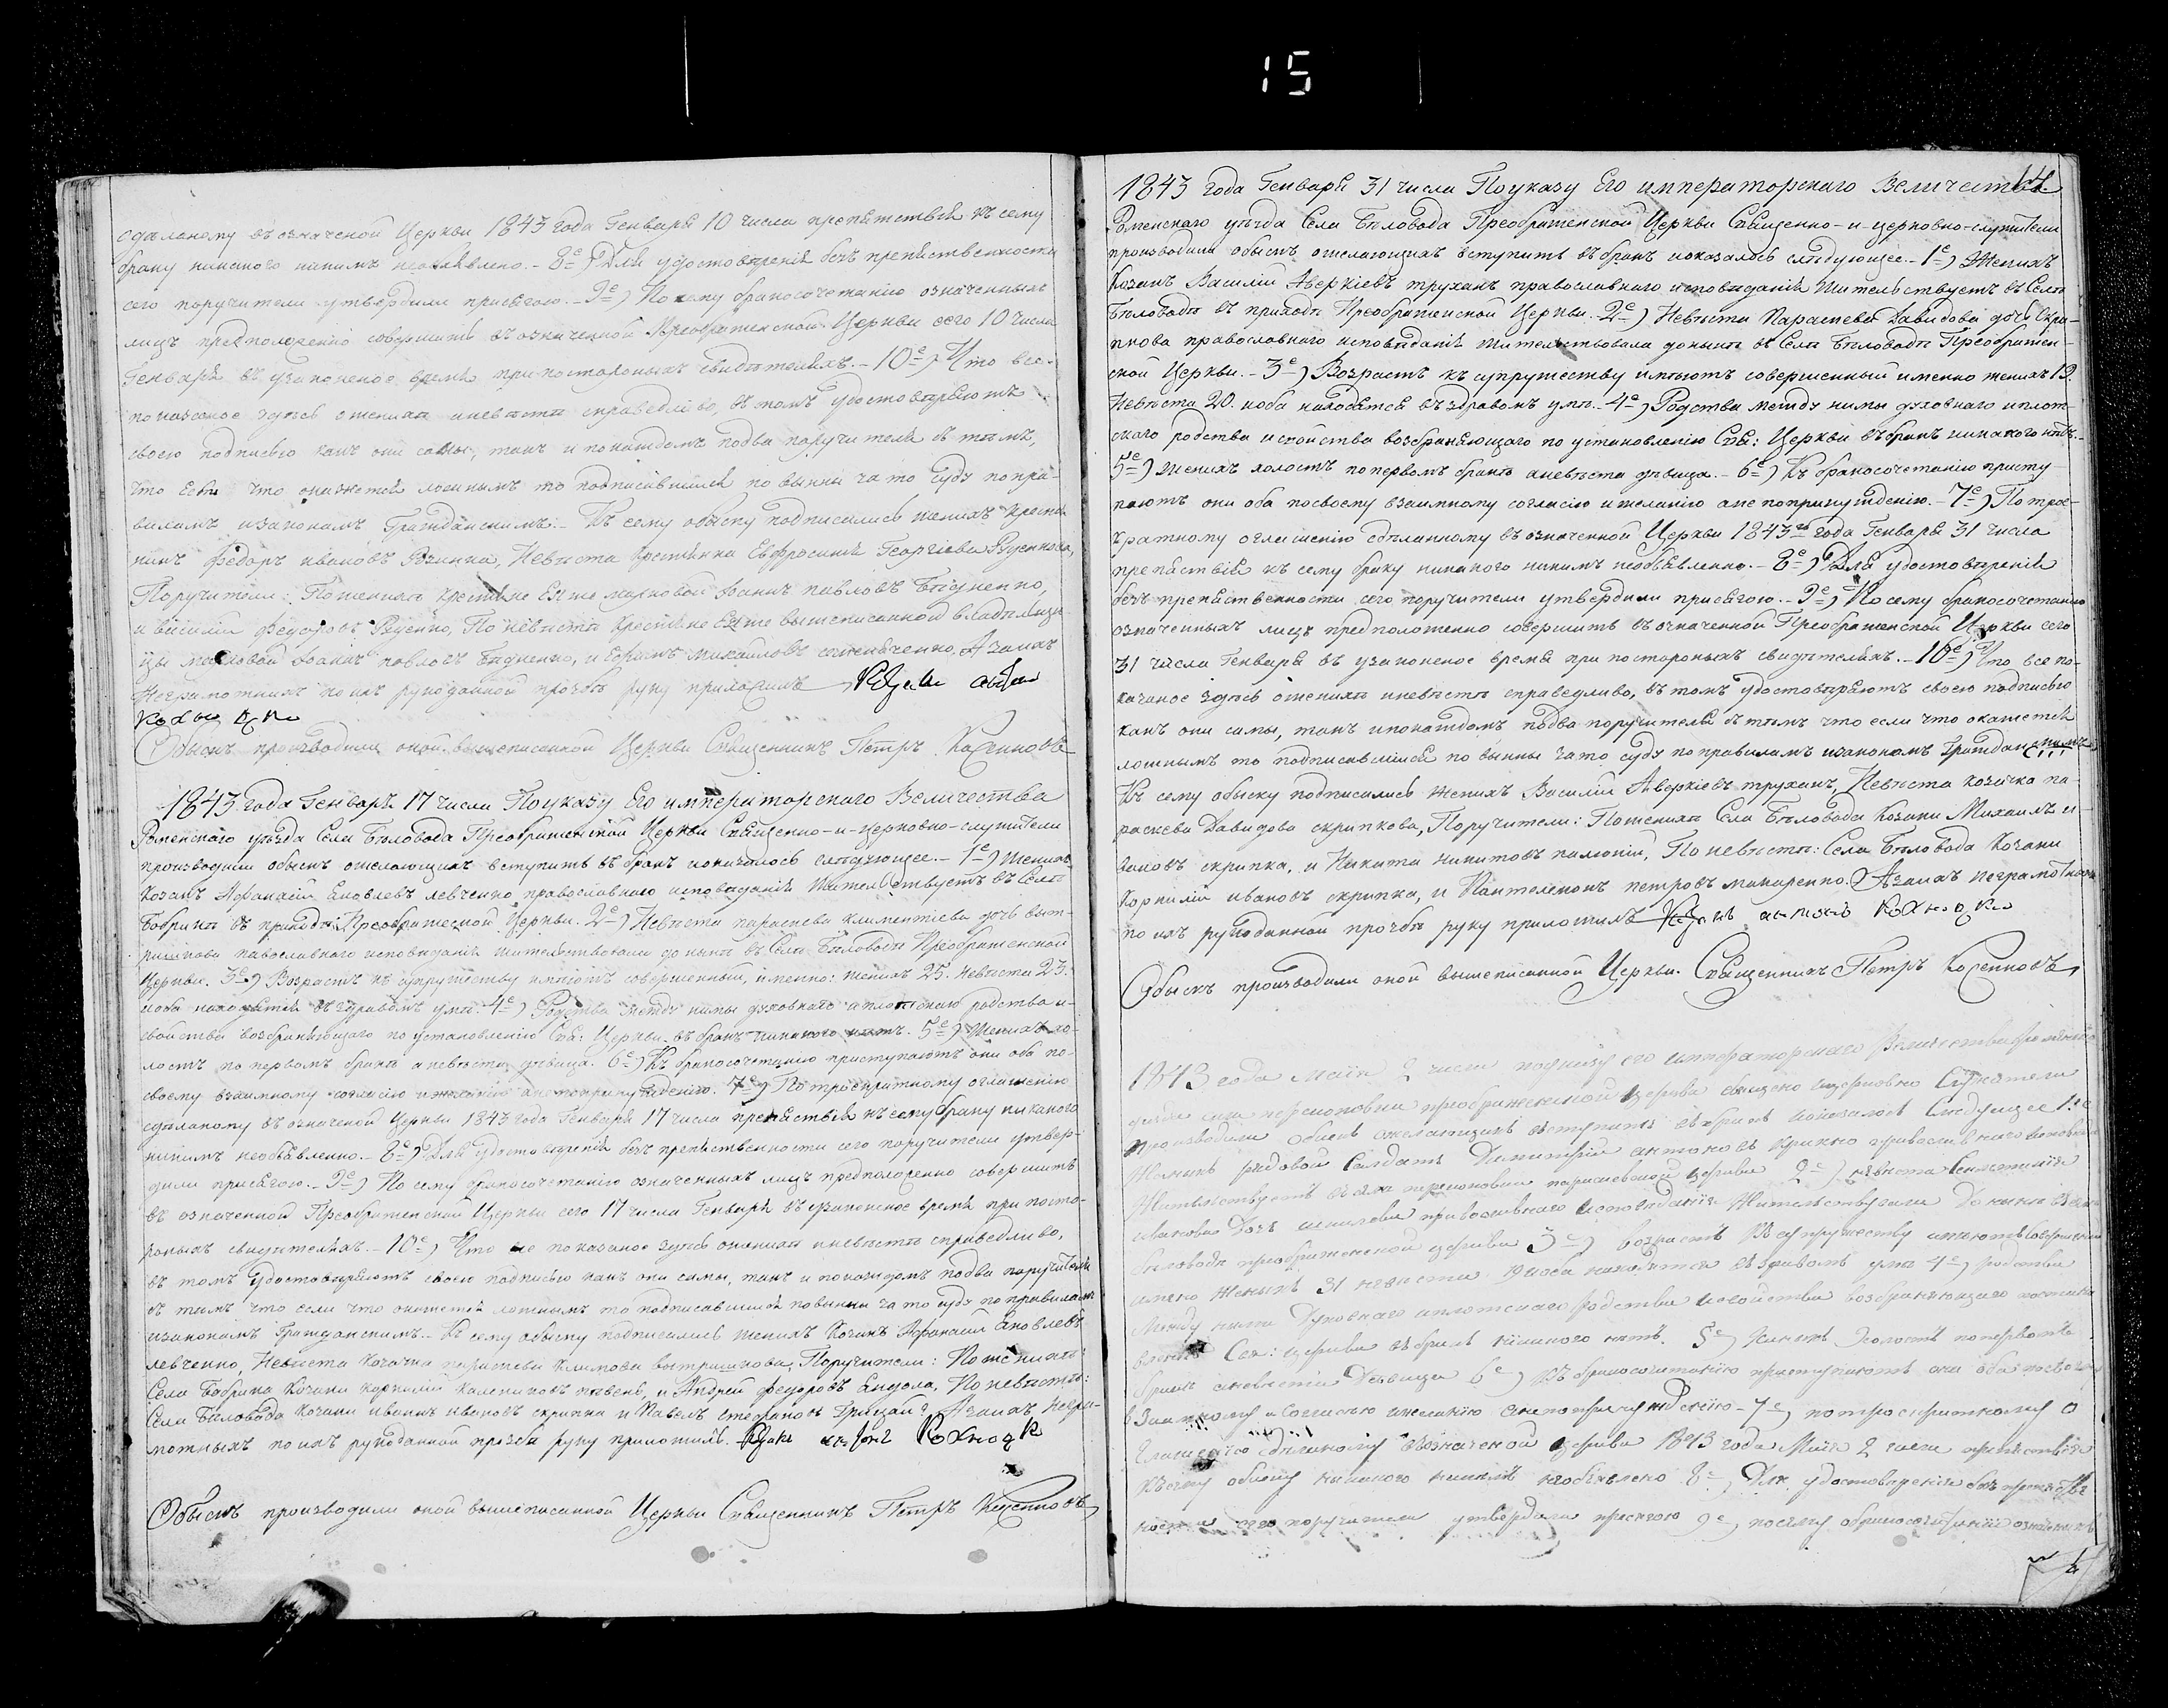 15
сдѣланому въ означеной Церкви 1843 года Генваря 10 числа препятствія къ сему
браку никакого никимъ необявлено. - 8е) Для удостовѣренія безъ препятственности
сего поручители утвердили присягою. - 9е) По сему бракосочетанію означенныхъ
лицъ предположено совершить въ означенной Преображенской Церкви сего 10 числа
Генваря въ узаконеное время при постороныхъ свидѣтеляхъ. - 10е) Что все
показаное здѣсь о женихѣ и невѣстѣ справедливо, въ томъ удостовѣряютъ
своею подписью какъ они самы, такъ и по каждомъ по два поручителя съ тѣмъ,
что если что окажется ложнымъ то подписавшиися повынны за то суду по пра-
виламъ и законамъ Гражданскимъ. - Къ сему обыску подписались женихъ крестья
нинъ Федоръ Ивановъ, Невѣста крестянка Евфросинія Георгіева Руденкова,
Поручители: По женихѣ крестяне Иоанъ Павловъ Бѣдненко,
и Василій Федоровъ Руденко, По невѣстѣ крестяне вышеписанной владѣлицы
Иоанъ Павловъ Бедненко, и Михайловъ А за нихъ
неграмотныхъ по ихъ рукоданной прозбѣ руку приложилъ Козакъ
Обыскъ производили оной вышеписанной Церкви Священникъ Петръ
1843 года Генваря 17 числа По указу Его императорского Величества
Роменского уѣзда Села Бѣловода Преображенской Церкви Священно-и-церковно-служители
производили обыскъ о желающихъ вступить въ бракъ и оказалось слѣдующее. - 1е) Женихъ
Козакъ Афанасій Яковлевъ Левченко православного исповѣданія жительствуетъ въ Селѣ
Бобрикѣ въ приходѣ Преображеской Церкви. 2е) Невѣста Параскева Климентіева дочь Выт-
ришкова павославного исповѣданія жительствовала до нынѣ въ Селѣ Бѣловодѣ Преображенской
Церкви. 3е) Возрастъ къ супружеству имѣютъ совершенный, именно: женихъ 25. Невѣста 23.
и оба находятся въ здравомъ умѣ. 4е) Родства между нимы духовнаго и плотскаго родства и
свойства возбраняющаго по установленію Свя: Церкви въ бракъ никакого нѣтъ. 5е) Женихъ хо-
лостъ по первомъ бракѣ а невѣста дѣвица. 6е) Къ бракосочетанію приступаютъ они оба по
своему взаимному согласію и желанію а не по принужденію. 7е) По троекратному оглашенію
сдѣланому въ означеной Церкви 1843 года Генваря 17 числа препятствія къ сему браку никакого
никимъ необявленно. - 8е) Для удостовѣренія безъ препятственности сего поручители утвер-
дили присягою. - 9е) По сему бракосочетанію означенныхъ лицъ предположенно совершить
въ означенной Преображенской Церкви сего 17 числа Генваря въ узаконеное время при посто-
роныхъ свидѣтеляхъ. - 10е) Что все показаное здѣсь о женихѣ и невѣстѣ справедливо,
въ томъ удостовѣряютъ своею подписью какъ они самы, такъ и по каждомъ по два поручителя
съ тѣмъ что если что окажется ложнымъ то подписавшиися повынны за то суду по правиламъ
и законамъ Гражданскимъ. - Къ сему обыску подписались женихъ Козакъ Афанасій Яковлевъ
Левченко, Невѣста Козачка Параскева Климова Вытришкова, Поручители: По женихѣ:
Села Бобрика Козаки Корнилій и Андрей Федоровъ По невѣстѣ:
Села Бѣловода Козаки Иванъ Ивановъ Скрипка и Павелъ Стефановъ Грицай. А за нихъ негра-
мотныхъ по ихъ рукоданной прозбѣ руку приложилъ. Козакъ
Обыскъ производили оной вышеписанной Церкви Священникъ Петръ
14.
1843 года Генваря 31 числа По указу Его императорскаго Величества
Роменского уѣзда Села Бѣловода Преображенской Церкви Священно-и-церковно-служители
производили обыскъ о желающихъ вступить въ бракъ и оказалось слѣдующее. - 1е) Женихъ
Козакъ Василій Аверкіевъ Труханъ православного исповѣданія жительствуетъ въ Селѣ
Бѣловодѣ въ приходѣ Преображенской Церкви. 2е) Невѣста Параскева Давидова дочь Скри-
пкова православного исповѣданія жительствовала до нынѣ въ Селѣ Бѣловодѣ Преображен-
ской Церкви. - 3е) Возрастъ къ супружеству имѣютъ совершенный именно женихъ 19.
Невѣста 20. и оба находятся въ здравомъ умѣ. - 4е) Родства между нимы духовнаго и плот-
скаго родства и свойства возбраняющаго по установленію Свя: Церкви въ бракъ никакого нѣтъ. -
5е) Женихъ холостъ по первомъ бракѣ а невѣста дѣвица. - 6е) Къ бракосочетанію присту-
паютъ они оба по своему взаимному согласію и желанію а не по принужденію. - 7е) По трое-
кратному оглашенію сдѣланному въ означенной Церкви 1843го года Генваря 31 числа
препятствія къ сему браку никакого никимъ необявленно. - 8е) Для удостовѣренія
безъ препятственности сего поручители утвердили присягою. - 9е) По сему бракосочетанію
означенныхъ лицъ предположенно совершить въ означенной Преображенской Церкви сего
31 числа Генваря въ узаконеное время при постороныхъ свидѣтеляхъ. - 10е) Что все по-
казаное здѣсь о женихѣ и невѣстѣ справедливо, въ томъ удостовѣряютъ своею подписью
какъ они самы, такъ и по каждомъ по два поручителя съ тѣмъ что если что окажется
ложнымъ то подписавшиися повынны за то суду по правиламъ и законамъ Гражданскимъ
Къ сему обыску подписались женихъ Василій Аверкіевъ Труханъ, Невѣста козачка Па-
раскева Давидова Скрипкова, Поручители: По женихѣ Села Бѣловода Козаки Михаилъ И-
вановъ Скрипка, и Никита Никитовъ По невѣстѣ: Села Бѣловода Козаки
Корнилій Ивановъ Скрипка, и Пантелемонъ Петровъ Макаренко. А за нихъ неграмотныхъ
по ихъ рукоданной прозбѣ руку приложилъ Козакъ
Обыскъ производили оной вышеписанной Церкви. Священникъ Петръ
1843 года Маія 2 числа по указу его императорскаго Величества Роменского
уѣзда села преображенской церкви священо и церковно Служители
производили обыскъ о желающихъ вступить въ бракъ и оказалось Следующее 1е
Женихъ рядовой Салдатъ Димитрій Антоновъ православнаго исповѣданія
Жительствуетъ въ селѣ церкви 2е) невѣста
дочь православнаго исповѣданія Жительствовала до нынѣ въ селѣ
Бѣловодѣ преображенской церкви 3е) возрастъ къ супружеству имѣютъ совершений
имено женихъ 31 невѣста и оба находятся въ здравомъ умѣ 4е) родства
Между ними Духовнаго и плотскаго родства и свойства возбраняющаго
Свя: церкви въ бракъ никакого нѣтъ. 5е) Женихъ холостъ по первомъ
бракѣ а невѣста Дѣвица 6е) Къ бракосочетанію приступаютъ они оба по своему
взаимному и согласію и желанію а не по принужденію - 7е) по троекратному о
глашенію сдѣланому въ означеной церкви 1843 года Маія 2 числа препятствія
Къ сему обыску никакого никимъ необявлено 8е) Для удостовѣренія безъ препятстве
ности сего поручители утвердили присягою 9е) по сему бракосочетанію означеныхъ